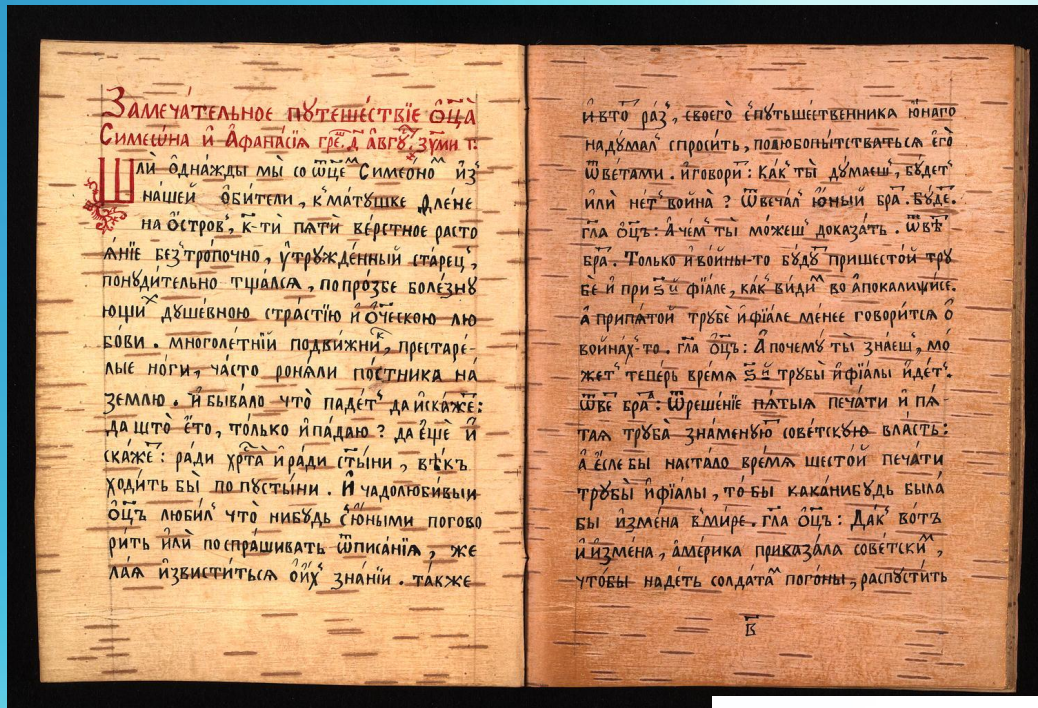 Замеча́тельное пꙋтеше́ствїе ѻ҆ц҃а
Симеѡ́на и҆ А҆фана́сїѧ
Шлѝ ѻ҆дна́жды мы̀ со ѿце́мъ Симео́но и҆з
на́шей ѻ҆би́тели, к ма́тушке Е҆ле́не
на ѻ҆́стров, к-ти пѧтѝ ве́рстное расто
ѧ́нїе без̾тро́почно, ᲂу҆трꙋжде́нный ста́рец,
понꙋди́тельно тща́лсѧ, по про́збе боле́знꙋ
ющих дꙋше́вною стра́стїю и҆ ѻ҆́ч҃ескою лю
бо́ви. многоле́тнїй подви́жник, престаре́-
лые но́ги, ча́сто роня́ли по́стника на
зе́млю. и҆ быва́ло что̀ паде́т да и҆ ска́же:
да што̀ е҆́то, то́лько и҆ па́даю? да е҆щѐ и҆
ска́же: ра́ди хр҃та̀ и҆ ра́ди ст҃ы́ни, вѣ́къ
ходи́ть бы̀ по пꙋсты́ни. и҆ чадолюби́выи
ѻ҆ц҃ъ люби́л что̀ нибꙋдь с ю҆́ными погово
ри́ть и҆лѝ поспра́шивать ѿ писа́нїѧ, же
ла́ѧ и҆звисти́ться ѻ҆ и҆́х зна́нїи. та́кже
и҆ в то̀ ра́з, своего̀ спꙋтьше́ственника ю҆́наго
надꙋ́мал спроси́ть, полюбопы́тствѧться е҆гѡ̀
ѿве́тами. и҆ говори: ка́к ты̀ дꙋ́маеш, бꙋ́дет
и҆лѝ не́т война̀? ѿвеча́л ю҆́ный бра. бꙋ́де.
гл҃а ѻ҆ц҃ъ: А҆ че́м ты̀ мо́жеш доказа́ть. ѿвѣ
бра. То́лько и҆ войны̀-то бꙋ́дꙋ при шесто́й трꙋ
бѐ и҆ при ѕ҃ й фїа́ле, ка́к ви́дим во а҆пока́лиѱисе.
а҆ при пѧ́той трꙋбѐ и҆ фїа́ле ме́нее говори́тся ѻ҆
война́х-то. гл҃а ѻ҆ц҃ъ: А҆ почемꙋ̀ ты̀ зна́еш, мо
жет тепе́рь вре́мѧ ѕ҃ й трꙋбы̀ и҆ фїа́лы и҆де́т.
ѿве бра: ѿреше́нїе пѧ́тыѧ печа́ти и҆ пѧ́-
тая трꙋба̀ зна́менꙋю сове́тскꙋю вла́сть:
а҆ е҆́сле бы наста́ло вре́мѧ шесто́й печа́ти
трꙋбы̀ и҆ фїа́лы, то́ бы кака́ нибꙋдь была̀
бы и҆зме́на в ми́ре. гл҃а ѻ҆ц҃ъ: Да́к во́тъ
и҆ и҆зме́на, а҆ме́рика приказа́ла сове́тским,
что́бы наде́ть солда́там пого́ны, распꙋсти́ть
в҃